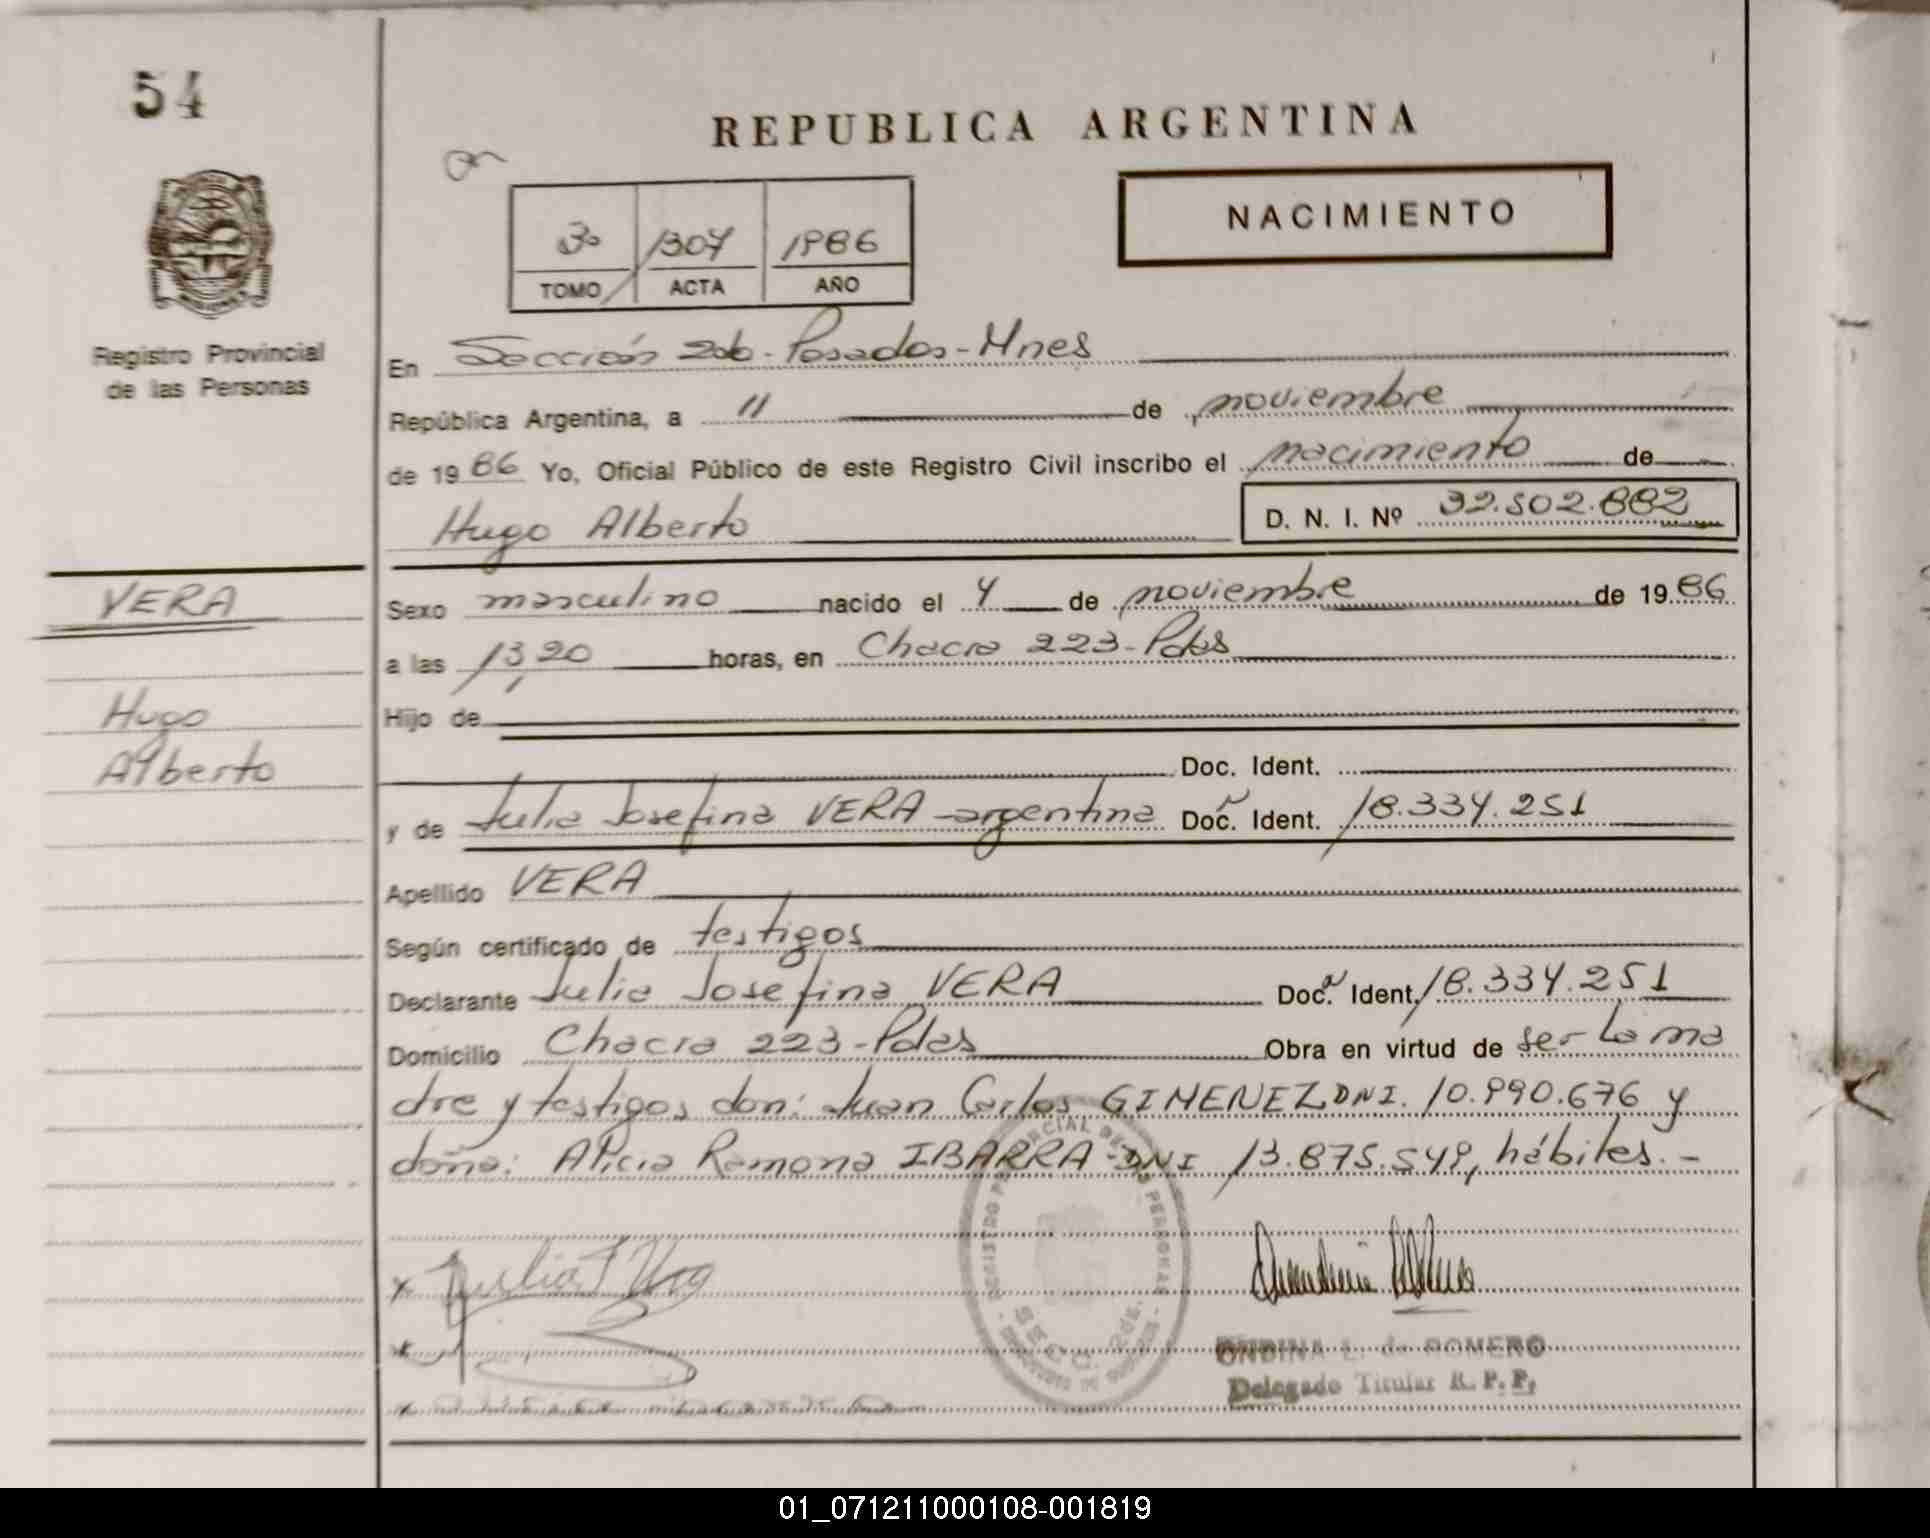 54
REPUBLICA ARGENTINA
NACIMIENTO
3º 1304 1986
TOMO ACTA AÑO
Registro Provincial
de las Personas
En Sección 2da - Posadas - Mnes
República Argentina, a 11 de noviembre
de 1986 Yo, Oficial Público de este Registro Civil inscribo el nacimiento de
Hugo Alberto D. N. I. Nº 32.502.882
VERA
Hugo
Alberto
Sexo masculino nacido el 4 de noviembre de 1986
a las 13,20 horas, en Chacra 223 - Pdas
Hijo de
Doc. Ident.
y de Julia Josefina VERA - argentina Doc. Ident. 18.334.251
Apellido VERA
Según certificado de testigos
Declarante Julia Josefina VERA Doc. Ident. 18.334.251
Domicilio Chacra 223 - Pdas Obra en virtud de ser la ma
dre y testigos don: Juan Carlos GIMENEZ DNI. 10.990.676 y
doña: Alicia Ramona IBARRA - DNI 13.875.549, hábiles. -
REGISTRO PROVINCIAL DE LAS PERSONAS
ONDINA L. de ROMERO
Delegado Titular R. P. P.
01_071211000108-001819